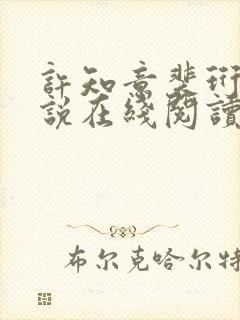 許知意裴衍
說在綫閱讀
布尔克哈尔特